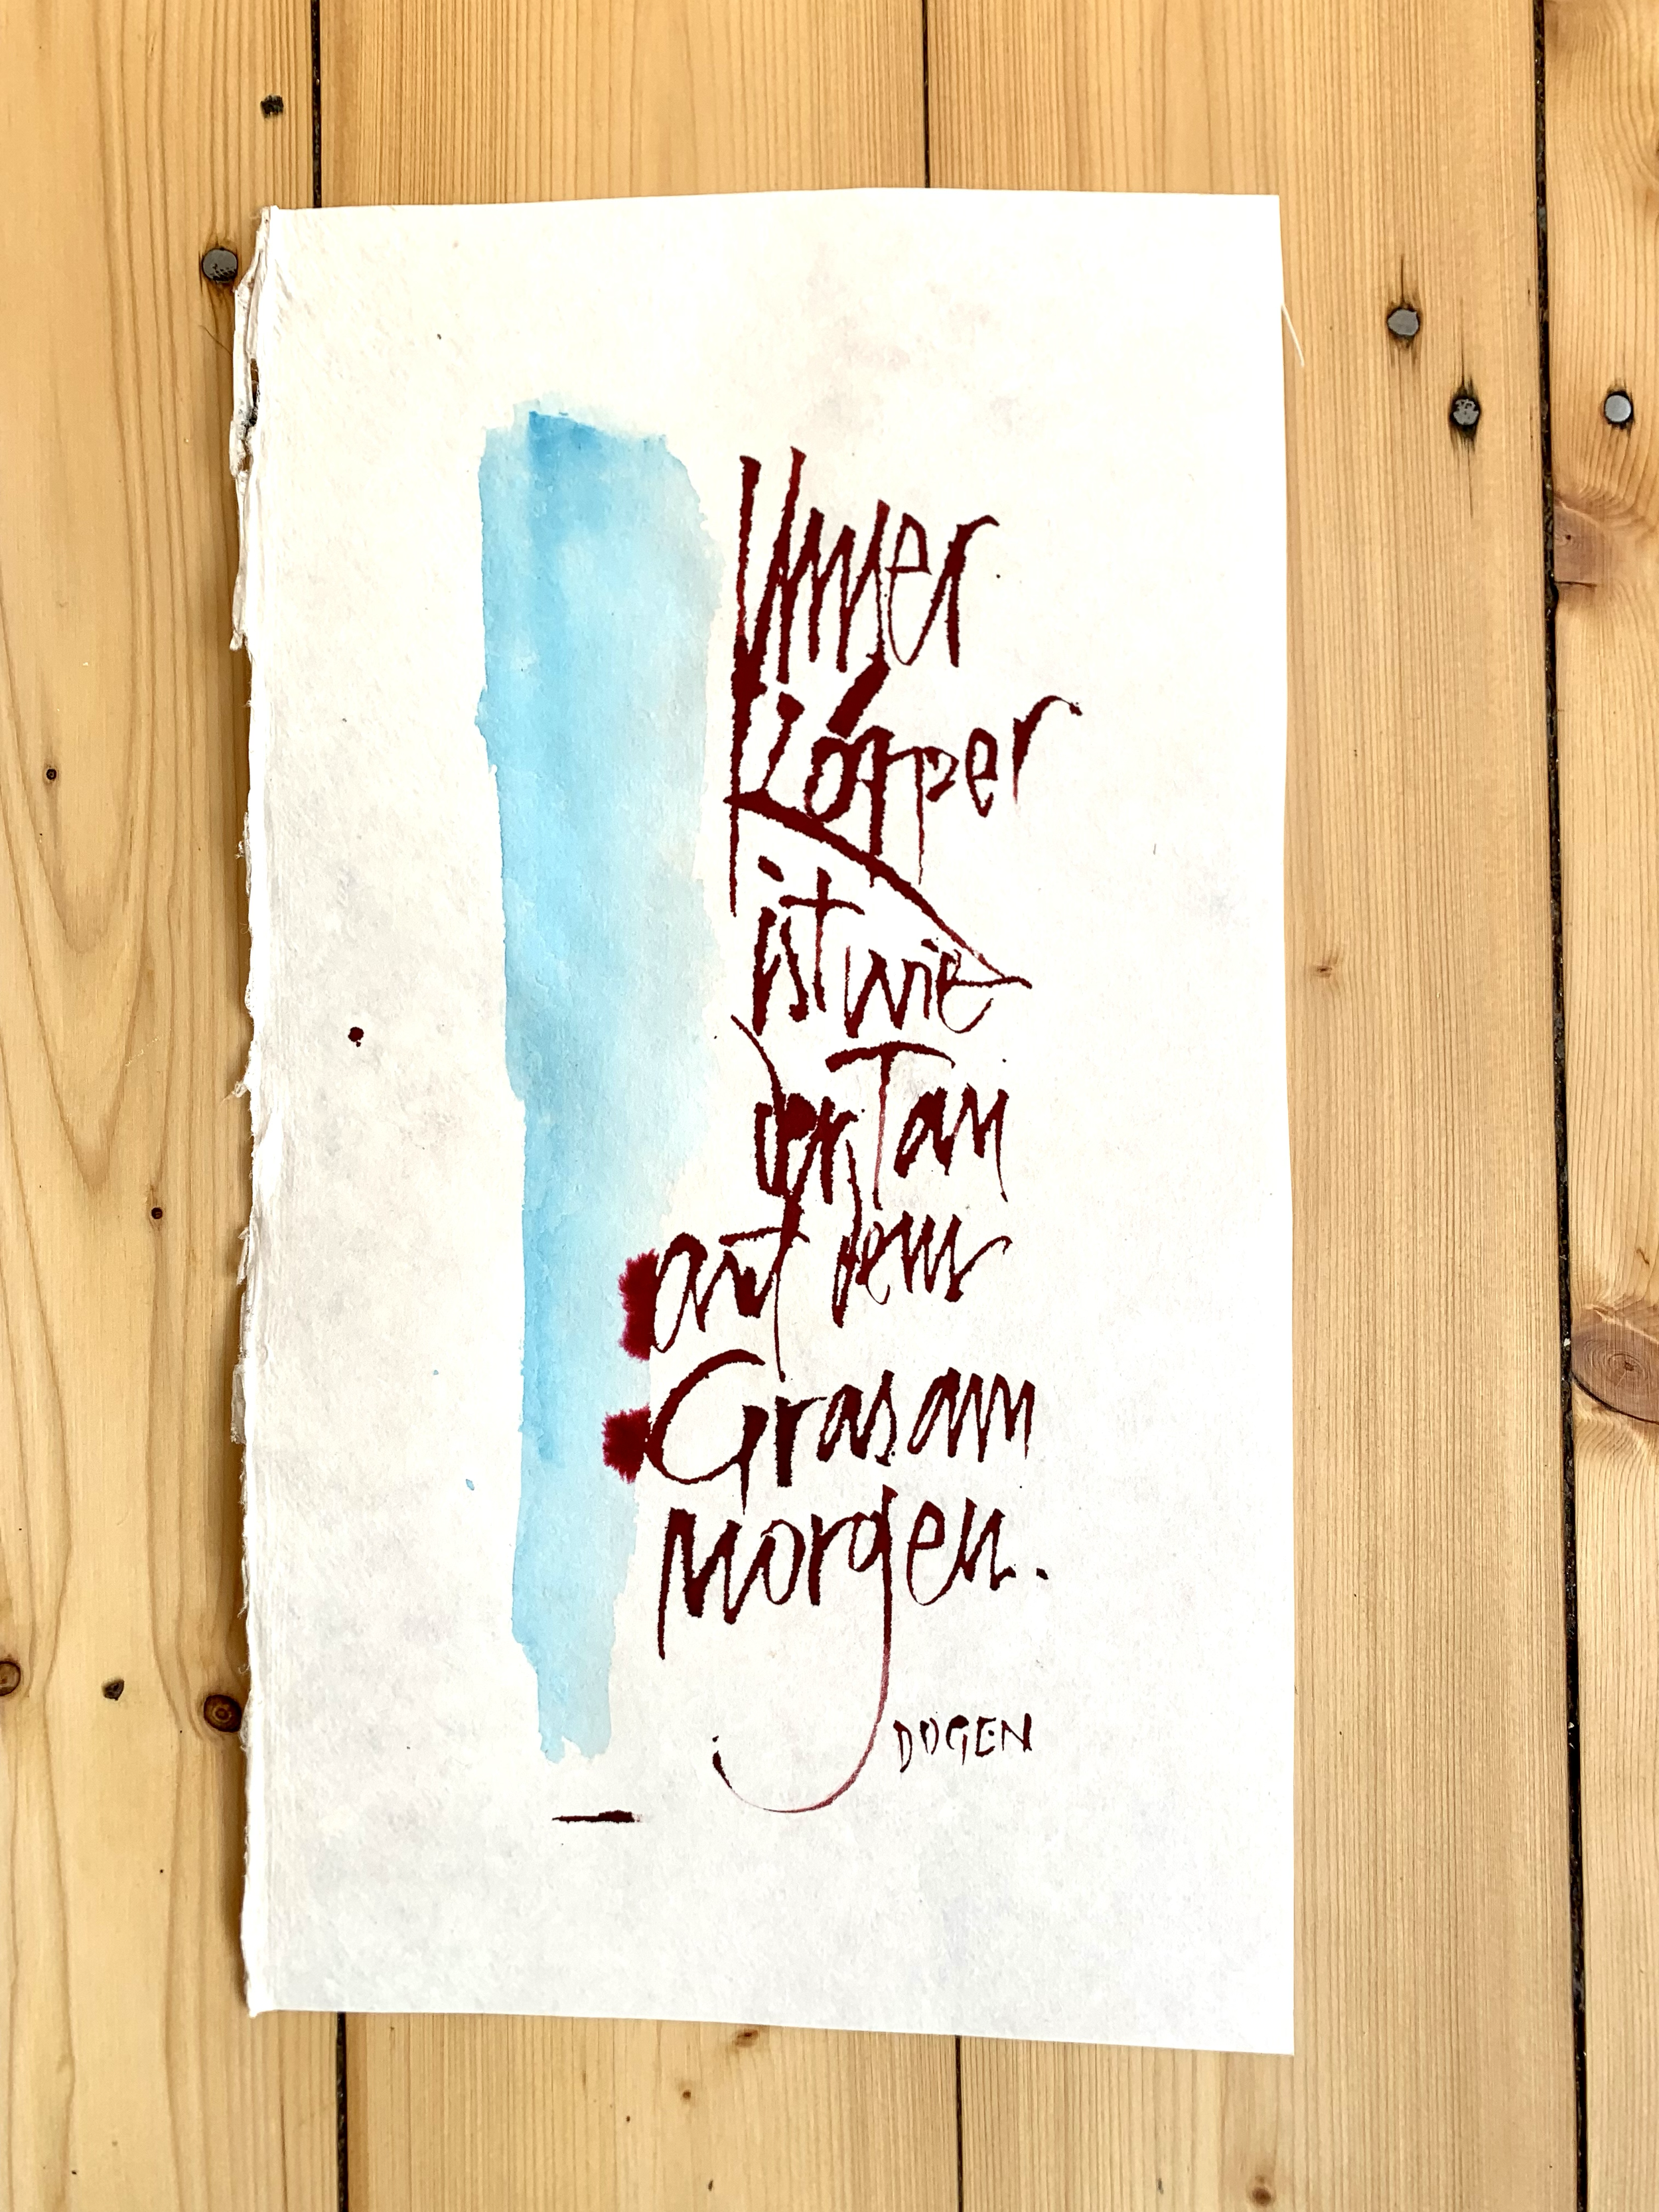 Unser
Körper
ist wie
der Tau
auf dem
Gras am
Morgen.
DOGEN